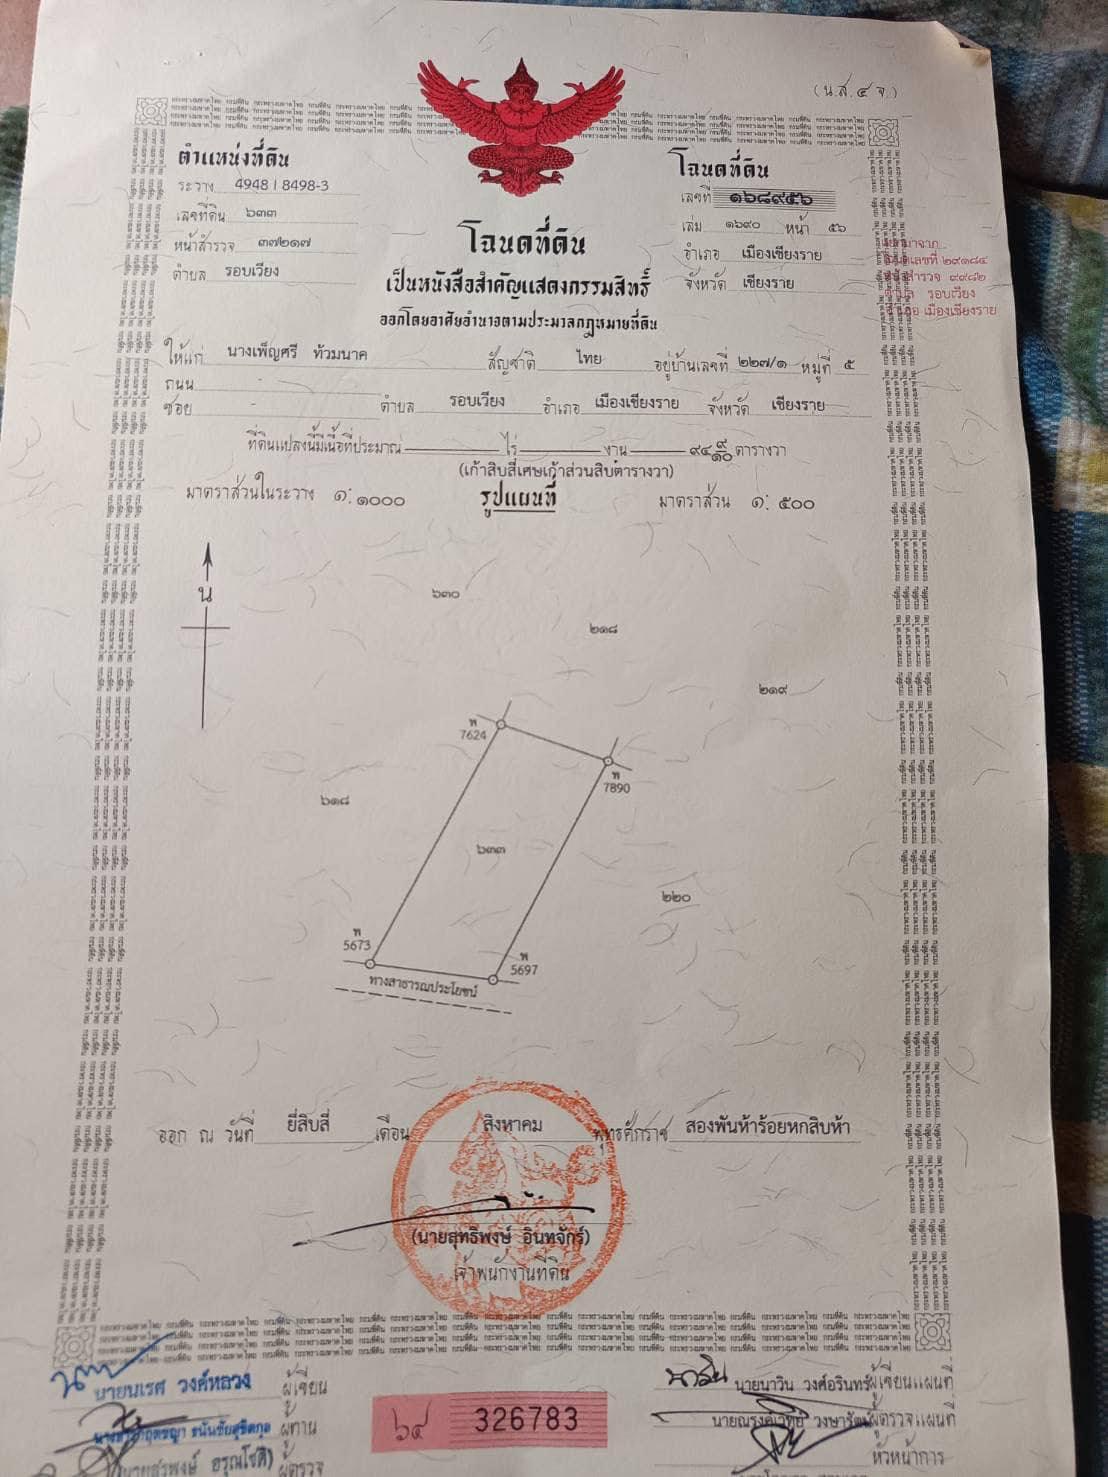 (น.ส.๔ จ.)
ตำแหน่งที่ดิน
ระวาง 4948 I 8498-3
เลขที่ดิน ๖๓๓
หน้าสำรวจ ๓๗๒๑๗
ตำบล รอบเวียง
โฉนดที่ดิน
เลขที่ ๑๖๘๙๕๖
เล่ม ๑๖๙๐ หน้า ๕๖
อำเภอ เมืองเชียงราย
จังหวัด เชียงราย
โฉนดที่ดิน
เป็นหนังสือสำคัญแสดงกรรมสิทธิ์
ออกโดยอาศัยอำนาจตามประมวลกฎหมายที่ดิน
เลขที่ ๒๙๑๘๔
สำรวจ ๙๙๘๒
ตำบล รอบเวียง
อำเภอ เมืองเชียงราย
ให้แก่ นางเพ็ญศรี ท้วมนาค สัญชาติ ไทย อยู่บ้านเลขที่ ๒๒๗/๑ หมู่ที่ ๕
ถนน -
ซอย - ตำบล รอบเวียง อำเภอ เมืองเชียงราย จังหวัด เชียงราย
ที่ดินแปลงนี้มีเนื้อที่ประมาณ ไร่ งาน ๙๔ ๙/๑๐ ตารางวา
(เก้าสิบสี่เศษเก้าส่วนสิบตารางวา)
มาตราส่วนในระวาง ๑: ๑๐๐๐ รูปแผนที่ มาตราส่วน ๑: ๕๐๐
น
๖๓๐
๒๑๘
๒๑๙
พ
7624
พ
7890
๖๑๘
๖๓๓
๒๒๐
พ
5673
พ
5697
ทางสาธารณประโยชน์
ออก ณ วันที่ ยี่สิบสี่ เดือน สิงหาคม พุทธศักราช สองพันห้าร้อยหกสิบห้า
(นายสุทธิพงษ์ อินทจักร์)
เจ้าพนักงานที่ดิน
นายนเรศ วงค์หลวง ผู้เขียน
ธนันชัยสุขิตกุล ผู้ทาน
(นายสุรพงษ์ อรุณโชติ) ผู้ตรวจ
๖๔ 326783
นายนาวิน วงศ์อรินทร์ ผู้เขียนแผนที่
นายณรงค์เวทย์ วงษารัตน์ ผู้ตรวจแผนที่
หัวหน้าการ